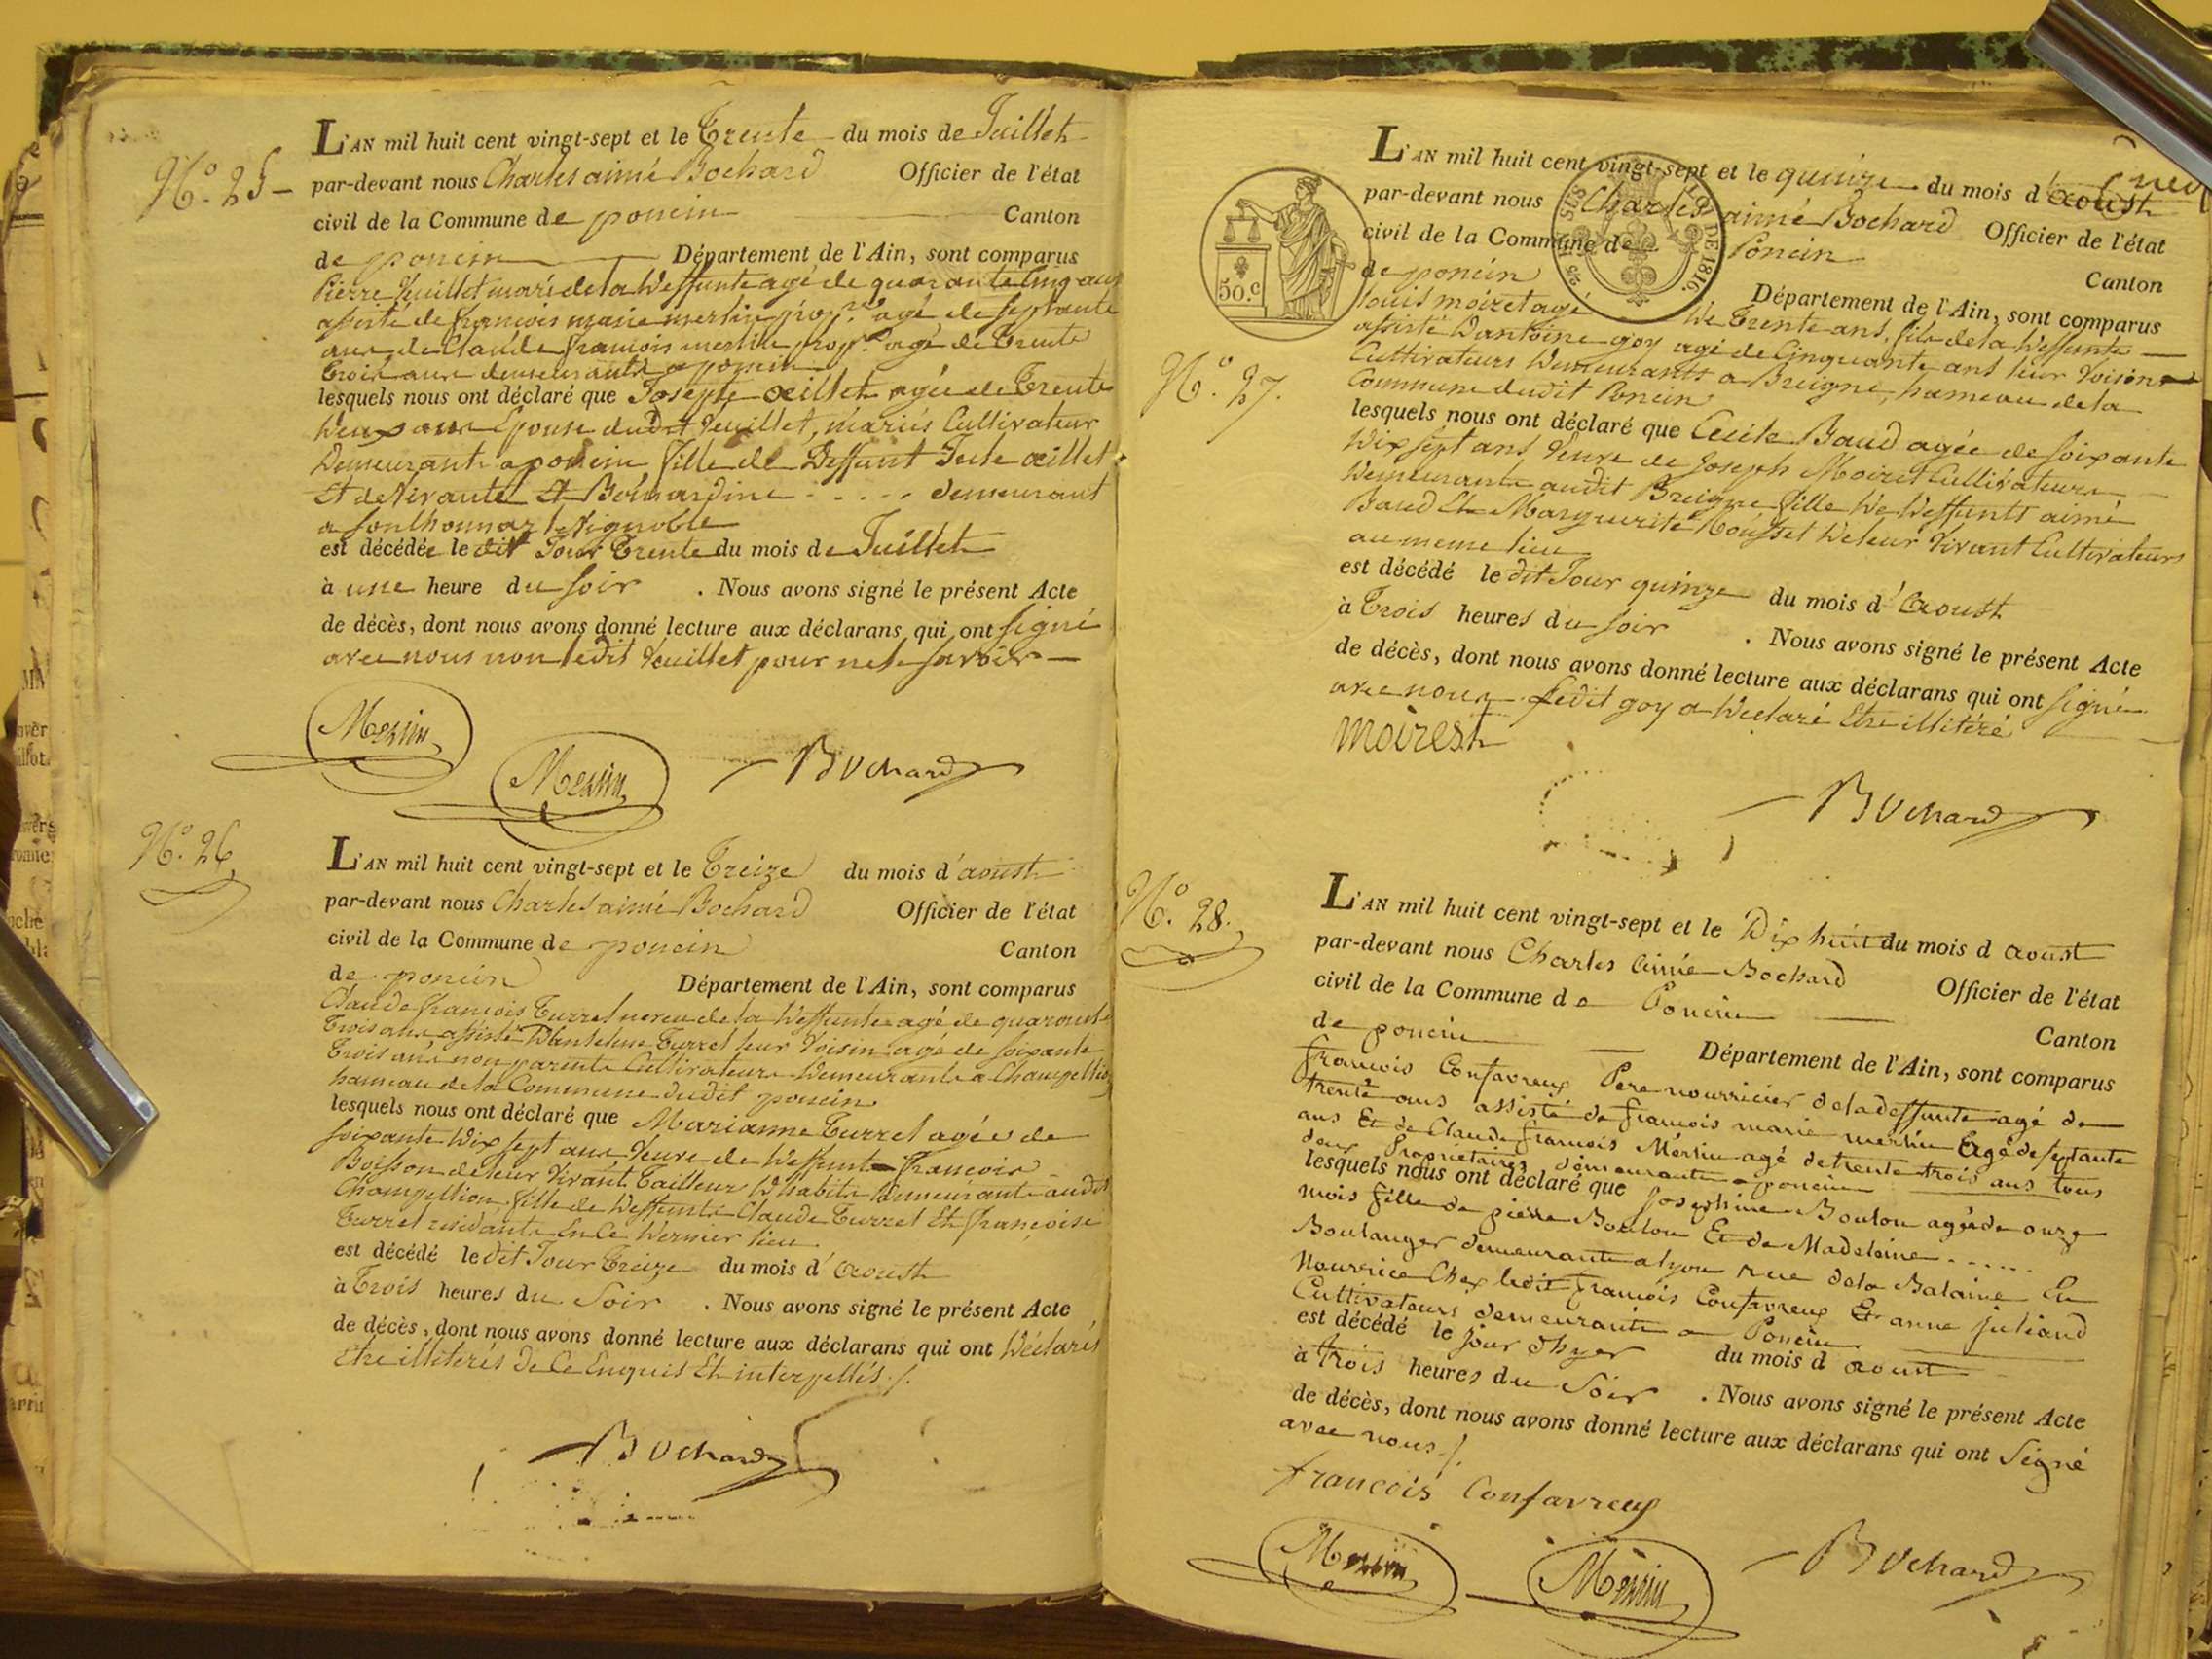 N.o 25
L'AN mil huit cent vingt-sept et le Trente du mois de Juillet
par-devant nous Charles aimé Bochard Officier de l'état
civil de la Commune de poncin Canton
de poncin Département de l'Ain, sont comparus
Pierre Veuillet mari de la Deffunte agé de quarante Cinq ans
assisté de françois marie merlin prop.re agé de septante
ans de Claude françois merlin prop.re agé de Trente
trois ans demeurants a poncin
lesquels nous ont déclaré que Josepte œillet agée de Trente
Deux ans Epouse dudit Veuillet, mariés Cultivateur
Demeurant a poncin fille de Deffunt œillet
Et de Vivante Et Bernardine ..... demeurant
a Vignoble
est décédée le dit Jour Trente du mois de Juillet
à une heure du soir . Nous avons signé le présent Acte
de décès, dont nous avons donné lecture aux déclarans qui ont signé
avec nous non ledit Veuillet pour ne le savoir
Merlin
Merlin
Bochard
N.o 26
L'AN mil huit cent vingt-sept et le Treize du mois d'aoust
par-devant nous Charles aimé Bochard Officier de l'état
civil de la Commune de poncin Canton
de poncin Département de l'Ain, sont comparus
Claude françois Turrel neveu de la Deffunte agé de quarante
Trois ans assisté D'Anthelme Turrel leur Voisin agé de soixante
Trois ans non parents Cultivateurs Demeurants a Champellion
hameau de la Commune dudit poncin
lesquels nous ont déclaré que Marianne Turrel agée de
soixante Dix sept ans Veuve de Deffunt François
Boisson de leur Vivant Tailleur D'habits demeurante audit
Champellion fille de Deffunts Claude Turrel Et françoise
Turrel residants En Ce Dernier lieu
est décédé le dit Jour Treize du mois d'aoust
à Trois heures du Soir . Nous avons signé le présent Acte
de décès, dont nous avons donné lecture aux déclarans qui ont Déclarés
Etre illiterés de Ce Enquis Et interpellés ./.
Bochard
50.c
DE 1816
N.o 27.
L'AN mil huit cent vingt-sept et le quinze du mois d'aoust
par-devant nous Charles aimé Bochard Officier de l'état
civil de la Commune de Poncin Canton
de poncin Département de l'Ain, sont comparus
louis moiret agé De Trente ans, fils de la Deffunte
assisté Dantoine goy agé de Cinquante ans leur Voisin
Cultivateurs Demeurants a Breigne, hameau de la
Commune dudit Poncin
lesquels nous ont déclaré que Cecile Baud agée de soixante
Dix sept ans Veuve de Joseph Moiret Cultivateurs
Demeurante audit Breigne fille De Deffunts aimé
Baud Et Marguerite Rousset De leur Vivant Cultivateurs
au meme lieu
est décédé le dit Jour quinze du mois d'aoust
à Trois heures du soir . Nous avons signé le présent Acte
de décès, dont nous avons donné lecture aux déclarans qui ont signé
avec nous. ledit goy a Déclaré Etre illitéré
moiret
Bochard
N.o 28.
L'AN mil huit cent vingt-sept et le Dix huit du mois d aoust
par-devant nous Charles aimé Bochard Officier de l'état
civil de la Commune de Poncin Canton
de poncin Département de l'Ain, sont comparus
françois Confavreux Pere nourricier de la deffunte agé de
trente ans assisté de françois marie merlin agé de septante
ans Et de Claude françois Merlin agé de trente trois ans tous
deux Propriétaires demeurants a poncin
lesquels nous ont déclaré que Josephine Boulon agée de onze
mois fille de pierre Boulon Et de Madeleine ......
Boulanger demeurante a lyon rue de la Balaine En
Nourrice Chez ledit françois Confavreux Et anne juliand
Cultivateurs demeurants a Poncin
est décédé le jour dhyer du mois d aoust
à trois heures du Soir . Nous avons signé le présent Acte
de décès, dont nous avons donné lecture aux déclarans qui ont Signé
avec nous ./.
françois Confavreux
Merlin
Merlin
Bochard